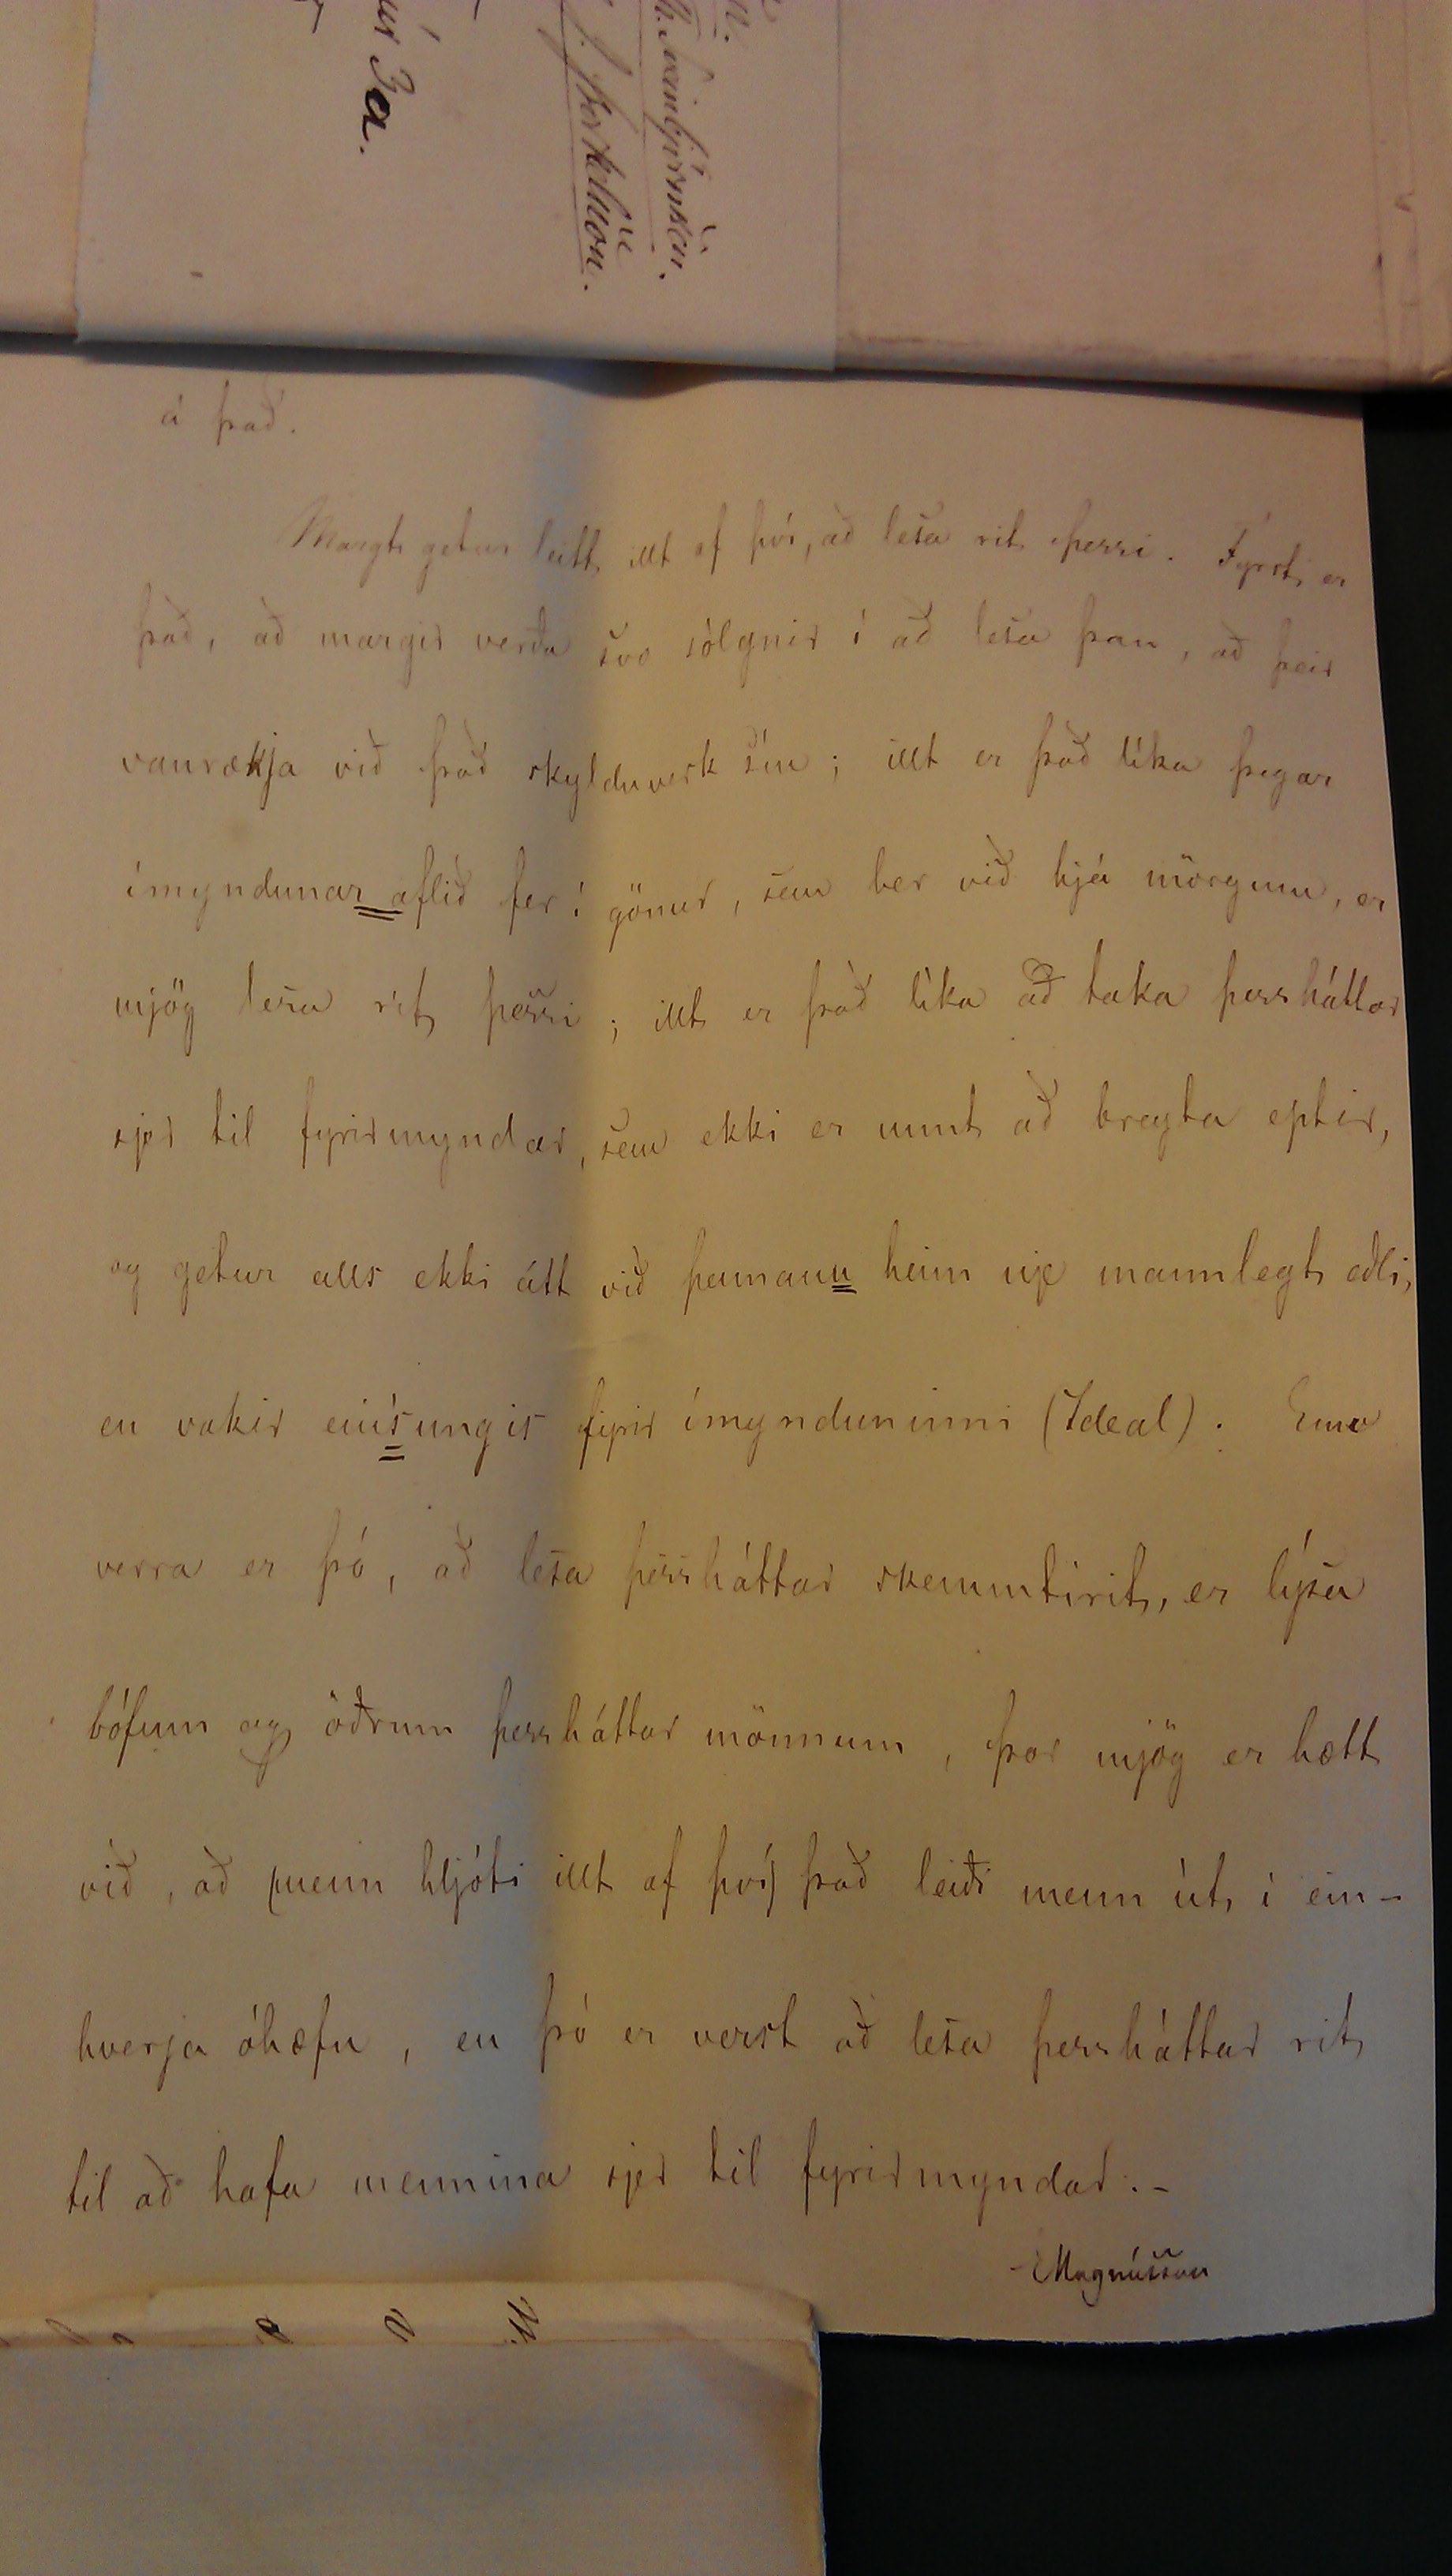 úr 3a.
Þorkelsson.
Sveinbjörnsson.
á það.
Margt getur leitt illt af því, að lesa rit þessi. Fyrst er
það, að margir verða svo sólgnir í að lesa þau, að þeir
vanrækja við það skylduverk sín; illt er það líka þegar
ímyndunar aflið fer í gönur, sem ber við hjá mörgum, er
mjög lesa rit þessi; illt er það líka að taka þessháttar
sjer til fyrirmyndar, sem ekki er unnt að breyta eptir,
og getur alls ekki átt við þennann heim nje mannlegt eðli,
en vakir einsungis fyrir ímynduninni (Ideal). Enn
verra er þó, að lesa þessháttar skemmtirit, er lýsa
bófum og öðrum þessháttar mönnum, þar mjög er hætt
við, að (menn hljóti illt af því) það leiði menn út í ein-
hverja óhæfu, en þó er verst að lesa þessháttar rit
til að hafa mennina sjer til fyrirmyndar.-
Magnússon